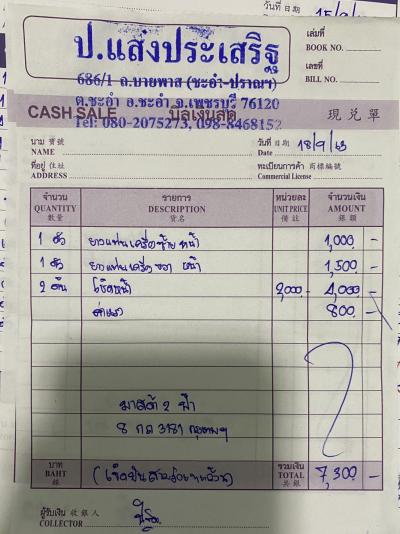 15/9/
ป.แสงประเสริฐ
686/1 ถ.บายพาส (ชะอำ-ปราณฯ)
ต.ชะอำ อ.ชะอำ จ.เพชรบุรี 76120
Tel: 080-2075273, 098-8468152
เล่มที่
BOOK NO.
เลขที่
BILL NO.
CASH SALE บิลเงินสด 現兑單
นาม 寶號
NAME
วันที่ 日期
Date 18/9/63
ที่อยู่ 住址
ADDRESS
ทะเบียนการค้า 商標編號
Commercial License
จำนวน รายการ หน่วยละ จำนวนเงิน
QUANTITY DESCRIPTION UNIT PRICE AMOUNT
數量 貨名 備註 銀額
1 ตัว ยางแท่นเครื่องซ้าย หน้า 1,000 -
1 ตัว ยางแท่นเครื่องขวา หน้า 1,500 -
2 ต้น โช๊คหน้า 2,000 - 4,000 -
ค่าแรง 800 -
มาสด้า 2 ฟ้า
8 กล 3181 กรุงเทพฯ
บาท รวมเงิน
BAHT (เจ็ดพันสามร้อยบาทถ้วน) TOTAL 7,300 -
錢 共銀
ผู้รับเงิน 收銀人
COLLECTOR